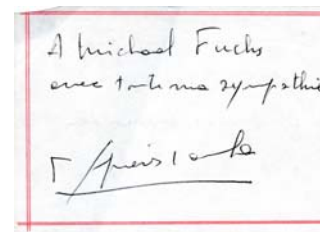 A Michael Fuchs
avec toute ma sympathie